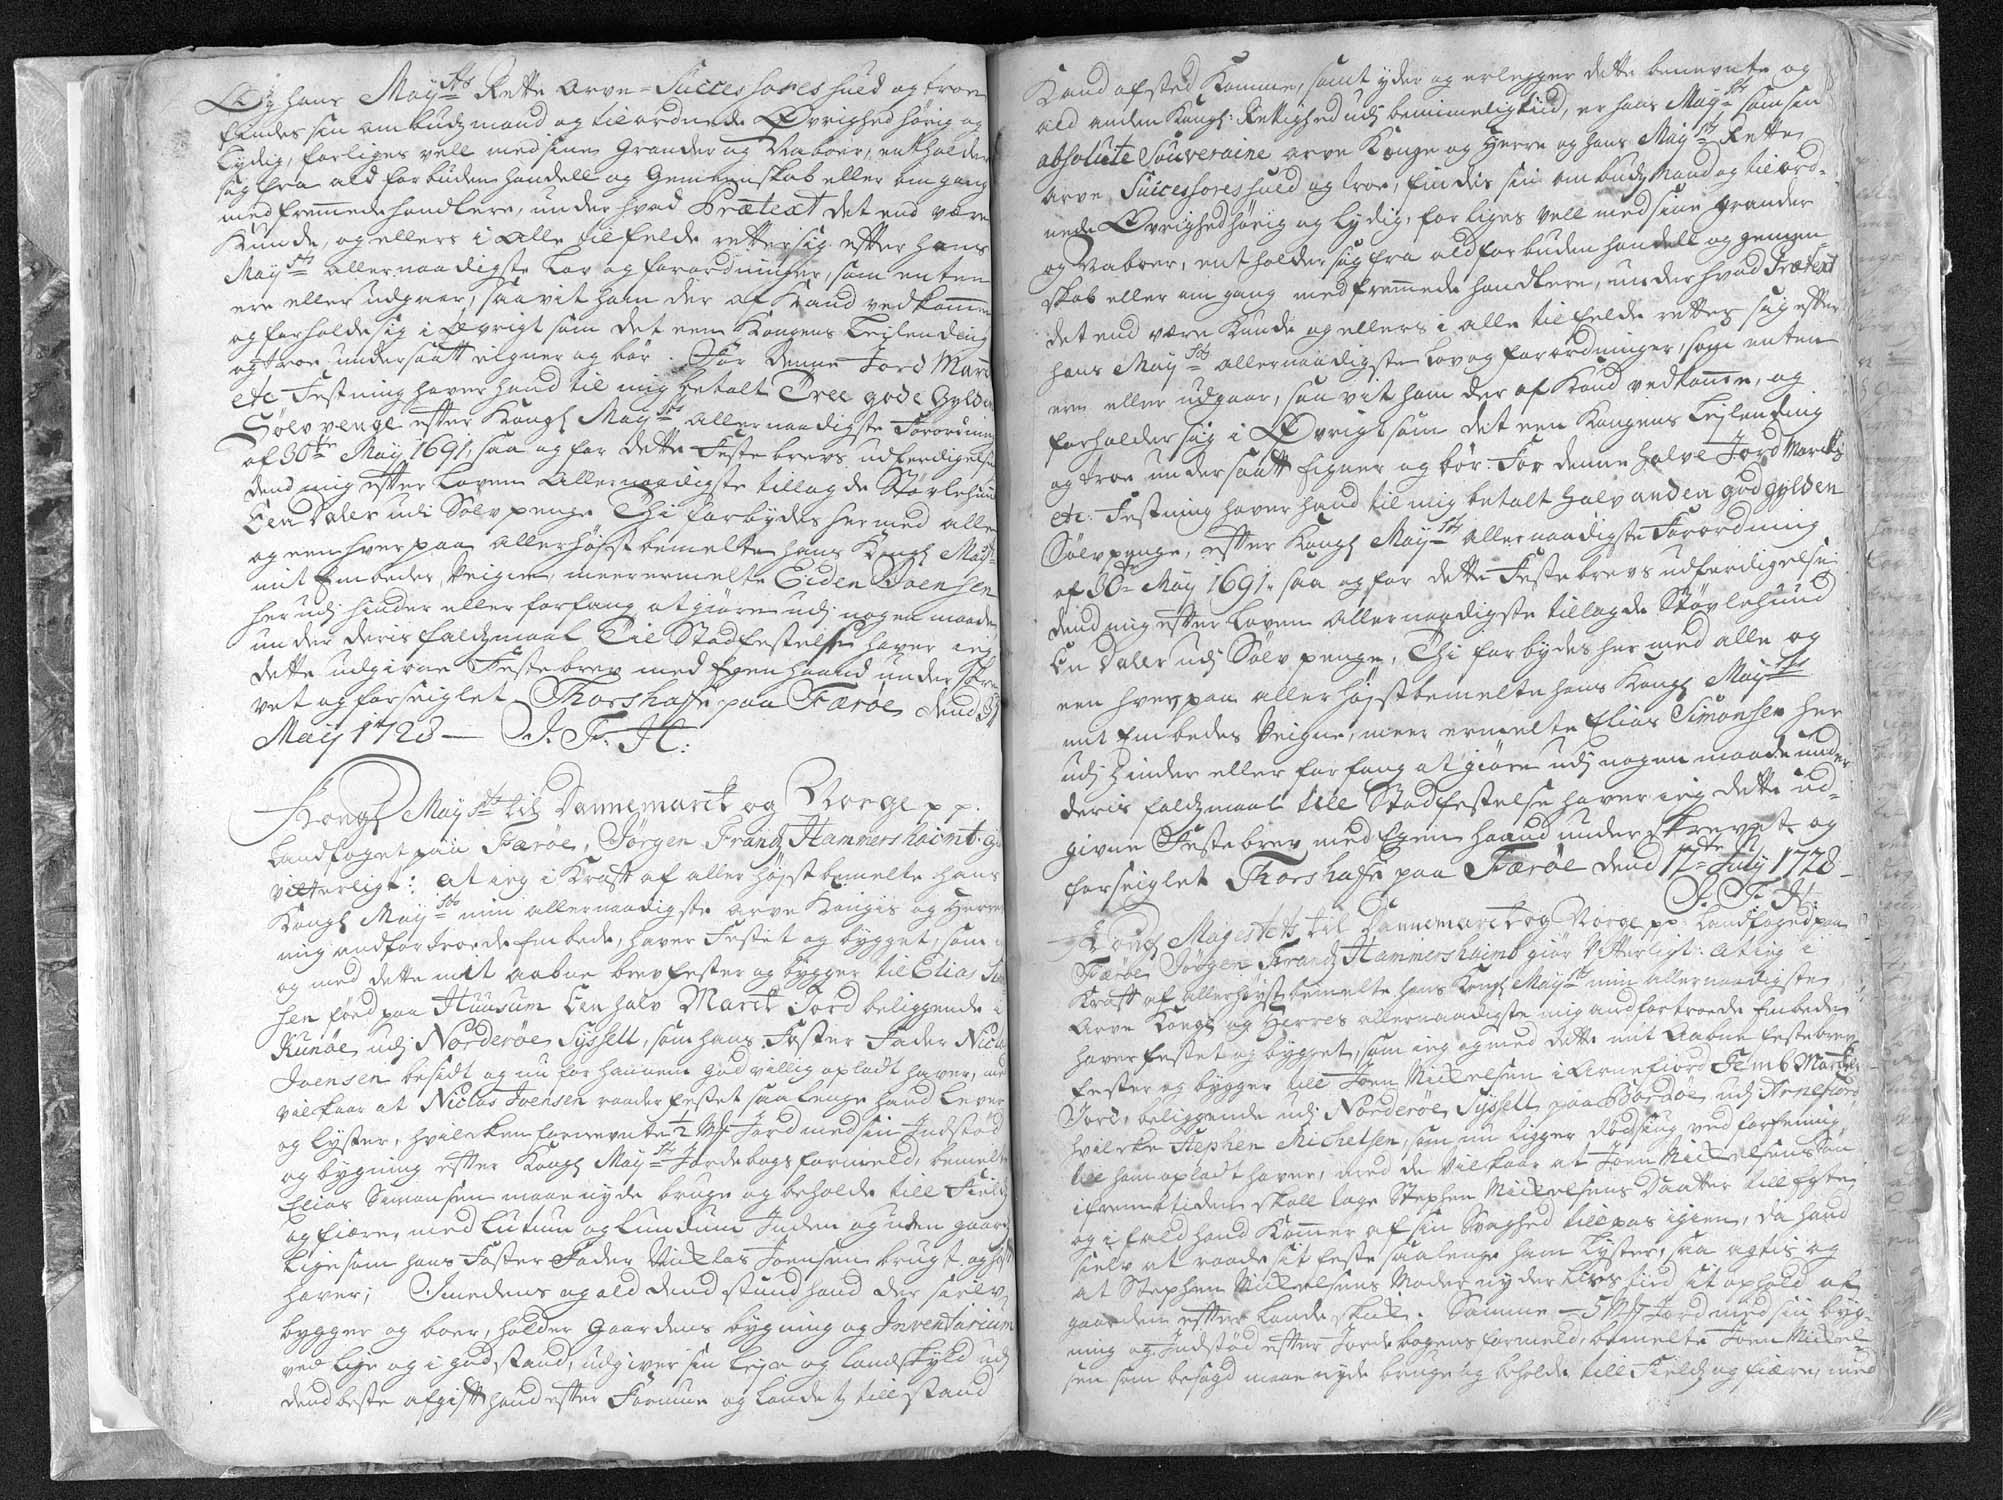 Og hans May^sts Rette Arve-Successores huld og troe
findes sin ombudzmand og tilordnede Øvrighed hörig og
Lydig, forliges vell med sine Grander og Naboer, entholder
sig fra ald forbuden handell og Gemeenskab eller omgang
med fremmede handlere, under hvad Prætext det end være
Kunde, og ellers i alle tilfelde retter sig efter hans
May^sts allernaadigste Lov og forordninger, som enten
ere eller udgaar, saavit ham der af Kand vedkomme
og forholde sig i Øvrigt som det een Kongens Leilending
og troe undersaatt eigner og bör. For denne Jord Marc
etc Festning haver hand til mig betalt Tree gode Gylden
Sölvpenge efter Kongl May^sts allernaadigste Forordning
af 30^te May 1691, saa og for dette Festebrevs udferdigelse
dend mig efter Loven Allernaadigste tillagde Stövlehuud
Een Daler udi Sölvpenge Thi forbydes hermed alle
og een hver paa allerhöyst bemelte hans Kongl May^sts
mit Embedes Veigne, meerermelte Eiden Joensen
her udj hinder eller forfang at giöre udj nogen maade
under deris faldzmaal Til Stadfestelse haver ieg
dette udgivne Festebrev med Egen haand under skre
vet og forseiglet Thorshafn paa Færöe dend 31
May 1728 — J. F. H:
Kongl May^sts til Dannemarck og Norge p p.
Landfoget paa Færöe, Jörgen Frandz Hammershaimb giö
vitterligt: at ieg i Kraft af aller höyst bemelte hans
Kongl May^sts min allernaadigste arve Kongis og Herres
mig andfortroede Embede, haver Festet og bygget, som
og med dette mit aabne brev fester og bygger til Elias Simon
sen föed paa Huusum Een halv Marck Jord beliggende i
Kunöe udj Norderöe Syssell, som hans Foster Fader Niclas
Joensen besidt og nu for hannem godvillig opladt haver, med
vilkaar at Niclas Joensen raader festet saalenge hand Lever
og lyster, hvilcken fornevnte ½ Mk Jord med sin Indstöd
og bygning efter Kongl May^sts Jordebogs formeld, bemelte
Elias Simonsen maa nyde bruge og beholde till Field
og fiære, med Lutum og Lundum Inden og uden gaards
Lige som hans Foster Fader Nicklas Joensen brugt og haft
haver; Imedens og ald dend stund hand der sielv
bygger og boer, holder Gaardens bygning og Inventarium
ved lige og i god stand, udgiver sin leje og landskyld udj
dend beste afgift hand efter Formue og landetz tillstand
Kand afsted Komme, samt yder og erlegger dette benevnte og
ald anden Kongl: Rettighed udj benimmeligtiid, er hans May^st som sin
absolute Souveraine arve Konge og Herre og hans May^sts Rette
arve Successores huld og troe, findes sin ombudz Mand og tilord-
nede Øvrighed hörig og lydig, forliges vell med sine Grander
og Naboer, entholder sig fra ald forbuden handell og gemeen
skab eller omgang med fremmede handlere, under hvad Prætext
det end være Kunde og ellers i alle tilfelde rettes sig efter
hans May^sts allernaadigste Lov og forordninger, som enten
ere eller udgaar, saa vit ham der af Kand vedkomme, og
forholder sig i Øvrigt som det een Kongens Leilending
og troe undersaatt Eigner og bör. For denne halve Jord Marckis
etc. Festning haver hand til mig betalt halvanden god gylden
Sölvpenge, efter Kongl May^sts allernaadigste Forordning
af 30^te May 1691. saa og for dette Festebrevs udferdigelse
dend mig efter Loven Allernaadigste tillagde Stövlehuud
En Daler udj Sölv penge, Thi forbydes her med alle og
een hver paa allerhöyst bemelte hans Kongl May^sts
mit Embedes Veigne, meer ermelte Elias Simonsen her
udj Hinder eller forfang at giöre udj nogen maade under
deris faldzmaal till Stadfestelse haver ieg dette ud-
givne Festebrev med Egen haand under skrevet og
forseiglet Thorshafn paa Færöe dend 17^de July 1728 —
J. F. H:
Kongl Majestets til Dannemarck og Norge pp. Landfoged paa
Færöe Jörgen Frandz Hammershaimb giör Vitterligt: at ieg i
Kraft af allerhöyst bemelte hans Kongl May^sts min allernaadigste
Arve Kongis og Herres allernaadigste mig andfortroede Embede
haver festet og bygget, som ieg og med dette mit Aabne festebrev
fester og bygger till Joen Mickelsen i Arnefiord Femb Marcker
Jord, beliggende udj Norderöe Syssell paa Bordöe udj Arnefiord
hvilcke Stephen Michelsen, som nu ligger ved forfenning
till ham opladt haver, med de Vilkaar at Joen Mickelsens Sön
i fremtiden skall tage Stephen Mickelsens Daatter till Egte,
og i fald hand Kommer af sin Svaghed till pas igien, da hand
sielv at raade sit feste saalenge ham lyster, saa agtis og
at Stephen Mickelsens Moder nyder Livs tiid sit ophold af
gaarden efter Lands skik. Samme — 5 Mk Jord med sin byg-
ning og Indstöd efter Jordebogens formeld, bemelte Joen Mickel
sen som besagd maa nyde bruge og beholde till Field og fiære, med